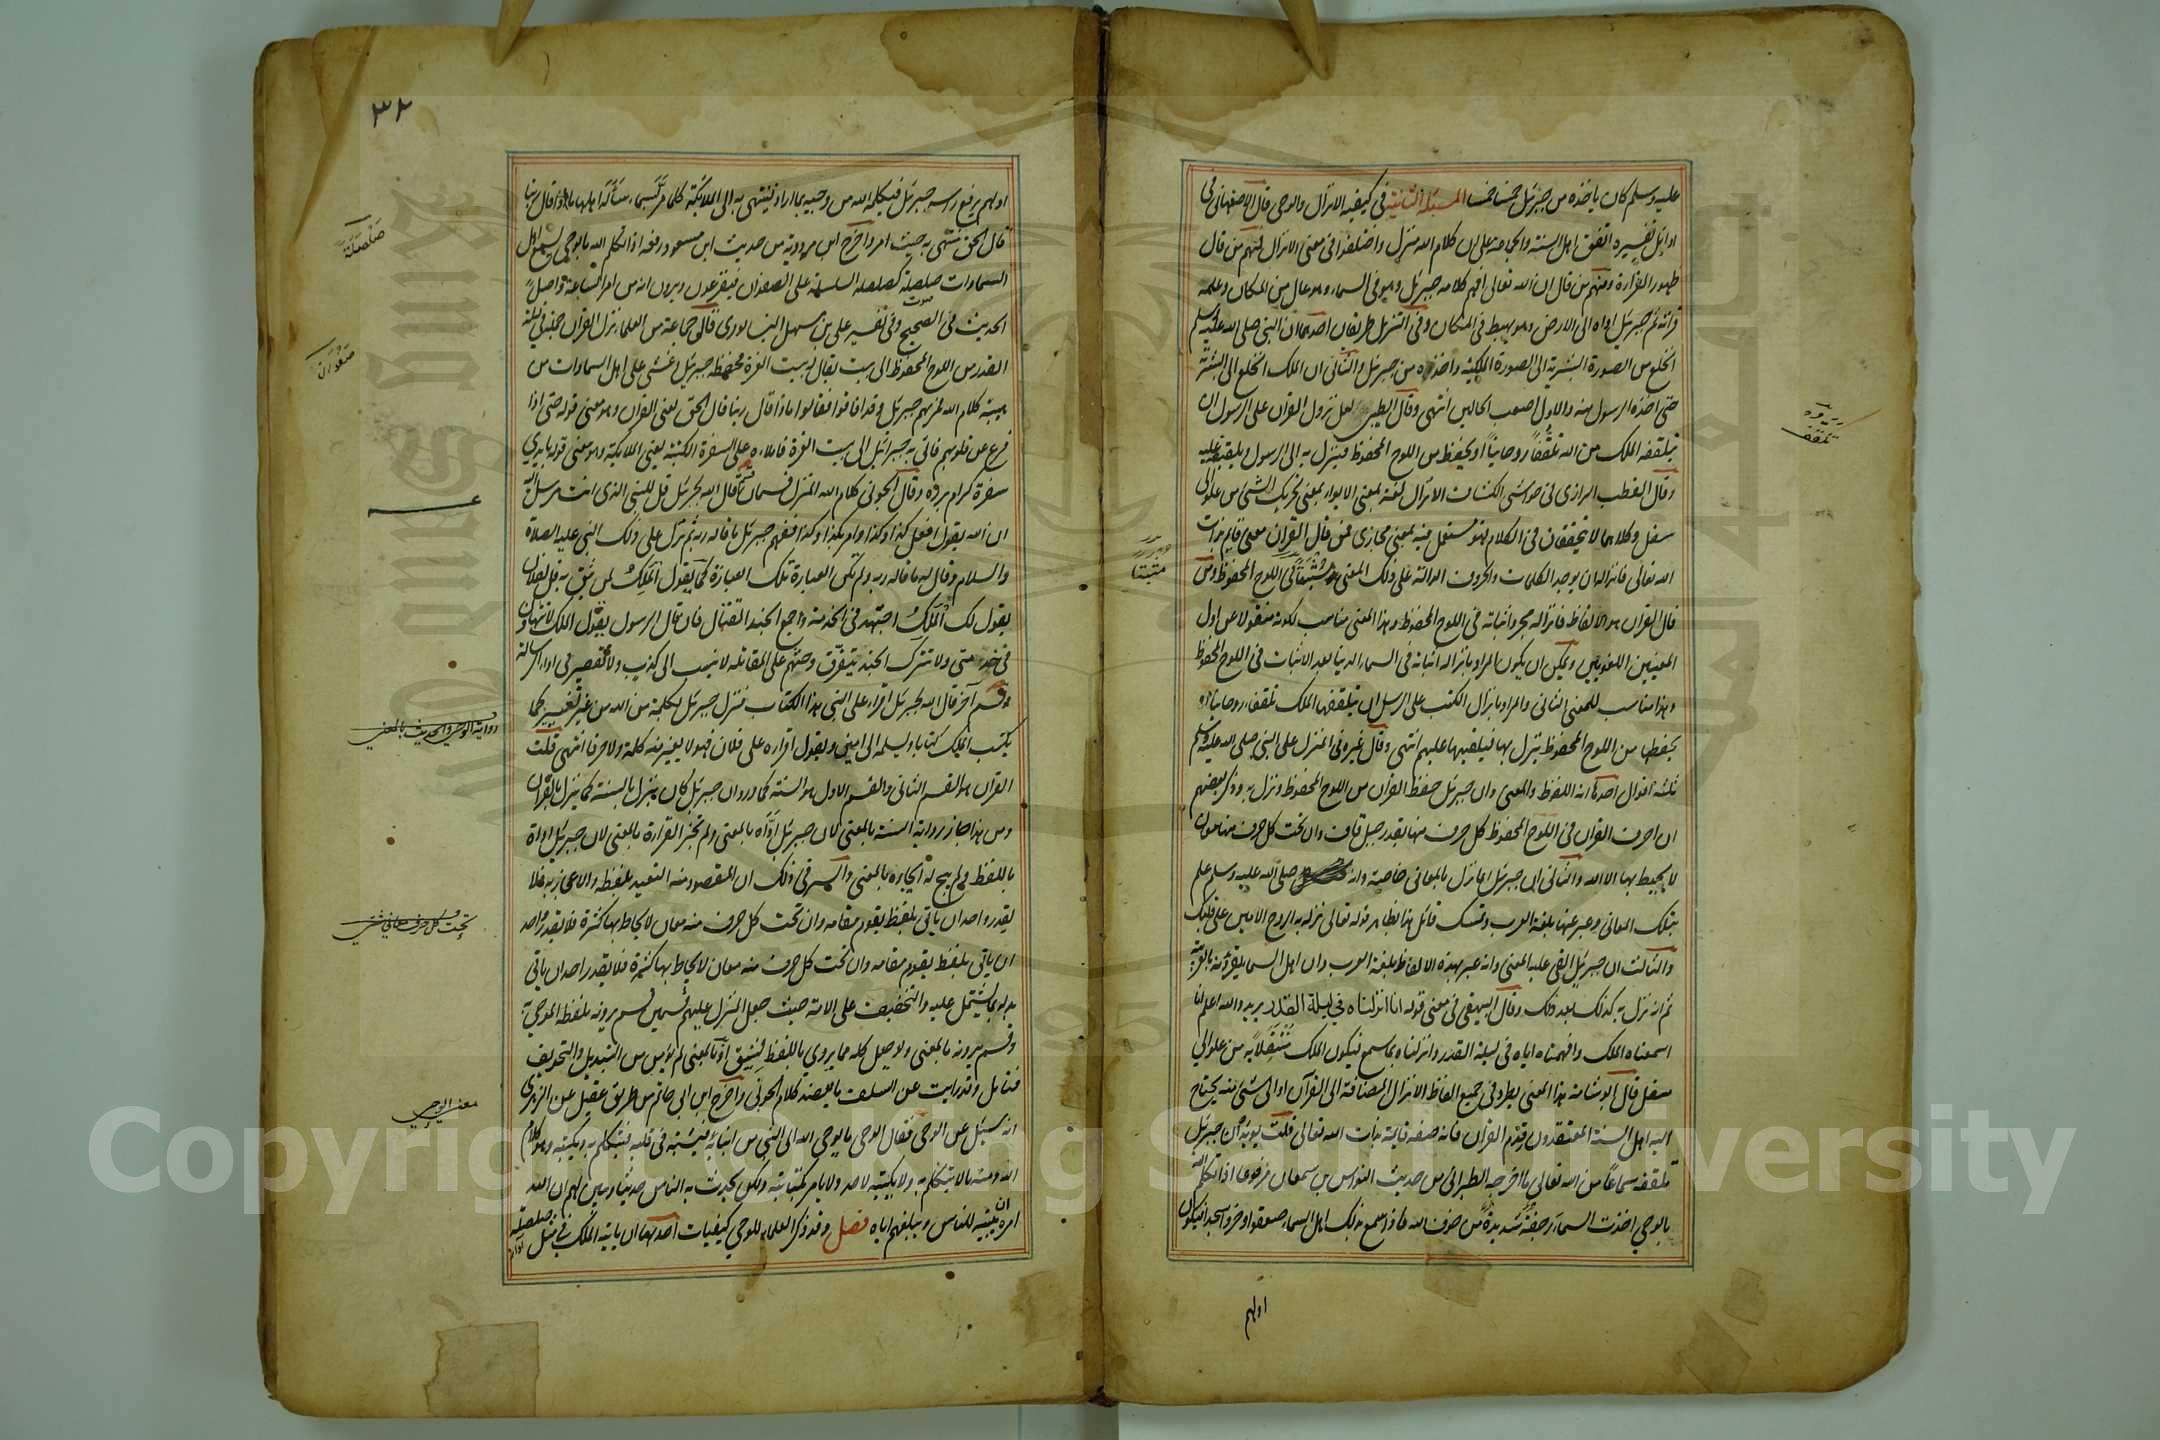 عليه وسلم كان ياخذه من جبرئيل خمسا خمسا المسئلة الثانية في كيفية الانزال والوحي قال الاصفهاني في
اوايل تفسيره اتفق اهل السنة والجماعة على ان كلام الله منزل واختلفوا في معنى الانزال فمنهم من قال
ظهور القراءة ومنهم من قال ان الله تعالى افهم كلامه جبرئيل وهو في السماء وهو عال من المكان وعلمه
قراته ثم جبرئيل اداه الى الارض وهو يهبط في المكان وفي التنزيل طريقان احدهما ان النبي صلى الله عليه وسلم
انخلع من الصورة البشرية الى الصورة الملكية واخذه من جبرئيل والثاني ان الملك انخلع الى البشرية
حتى اخذه الرسول منه والاول اصعب الحالين انتهى وقال الطيبي لعل نزول القرآن على الرسول ان
يتلقفه الملك من الله تلقفا روحانيا او يحفظ من اللوح المحفوظ فينزل به الى الرسول ويلقيه عليه
وقال القطب الرازي في حواشي الكشاف الانزال لغة بمعنى الايواء وبمعنى تحريك الشئ من علو الى
سفل وكلاهما لا يتحققان في الكلام فهو مستعمل فيه بمعنى مجازي فمن قال القرآن معنى قايم بذات
الله تعالى فانزاله ان يوجد الكلمات والحروف الدالة على ذلك المعنى ويثبتها في اللوح المحفوظ ومن
قال القرآن هو الالفاظ فانزاله مجرد اثباته في اللوح المحفوظ وهذا المعنى مناسب لكونه منقولا عن اول
المعنيين اللغويين ويمكن ان يكون المراد بانزاله اثباته في السماء الدنيا بعد الاثبات في اللوح المحفوظ
وهذا مناسب للمعنى الثاني والمراد بانزال الكتب على الرسل ان يتلقفها الملك تلقفا روحانيا او
يحفظها من اللوح المحفوظ وينزل بها فيلقيها عليهم انتهى وقال غيره في المنزل على النبي صلى الله عليه وسلم
ثلثة اقوال احدها انه اللفظ والمعنى وان جبرئيل حفظ القرآن من اللوح المحفوظ ونزل به وذكر بعضهم
ان احرف القرآن في اللوح المحفوظ كل حرف منها بقدر جبل قاف وان تحت كل حرف منها معان
لا يحيط بها الا الله والثاني ان جبرئيل انما نزل بالمعاني خاصة وانه صلى الله عليه وسلم علم
تلك المعاني وعبر عنها بلغة العرب وتمسك قائل هذا بظاهر قوله تعالى نزل به الروح الامين على قلبك
والثالث ان جبرئيل القي عليه المعنى وانه عبر بهذه الالفاظ بلغة العرب وان اهل السماء يقرؤنه بالعربية
ثم انه نزل به كذلك بعد ذلك وقال البيهقي في معنى قوله انا انزلناه في ليلة القدر يريد والله اعلم انا
اسمعناه الملك وافهمناه اياه في ليلة القدر وانزلناه بما سمع فيكون الملك منتقلا به من علو الى
سفل قال ابو شامة هذا المعنى يطرد في جميع الفاظ الانزال المضافة الى القرآن او الى شئ منه يحتاج
اليه اهل السنة المعتقدون قدم القرآن فانه صفة قايمة بذات الله تعالى قلت يؤيد ان جبرئيل
تلقفه سماعا من الله تعالى ما اخرجه الطبراني من حديث النواس بن سمعان مرفوعا اذا تكلم الله
بالوحي اخذت السماء رجفة شديدة من خوف الله فاذا سمع بذلك اهل السماء صعقوا وخروا سجدا فيكون
اولهم
تلقف
مثبتا
٣٢
اولهم يرفع راسه جبرئيل فيكلمه الله من وحيه بما اراد فينتهي به الى الملائكة كلما مر بسماء سأله اهلها ماذا قال ربنا
قال الحق فينتهي به حيث امر واخرج ابن مردويه من حديث ابن مسعود رفعه اذا تكلم الله بالوحي سمع اهل
السماوات صلصلة كصلصلة السلسلة على الصفوان فيفزعون ويرون انه من امر الساعة واصل
الحديث في الصحيح وفي تفسير علي بن سهل النيسابوري قال جماعة من العلماء نزل القرآن جملة في ليلة
القدر من اللوح المحفوظ الى بيت يقال له بيت العزة فحفظه جبرئيل وغشي على اهل السماوات من
هيبة كلام الله فمر بهم جبرئيل وقد افاقوا فقالوا ماذا قال ربنا قال الحق يعني القرآن وهو معنى قوله حتى اذا
فزع عن قلوبهم فاتى به جبرائيل الى بيت العزة فاملاه على السفرة الكتبة يعني الملائكة وهو معنى قوله بايدي
سفرة كرام بررة وقال الجويني كلام الله المنزل قسمان قسم قال الله لجبرئيل قل للنبي الذي انت مرسل اليه
ان الله يقول افعل كذا وكذا وامر بكذا وكذا ففهم جبرئيل ما قاله ربه ثم نزل على ذلك النبي عليه الصلاة
والسلام وقال له ما قاله ربه ولم تكن العبارة تلك العبارة كما يقول الملك لمن يثق به قل لفلان
يقول لك الملك اجتهد في الخدمة واجمع الجند للقتال فان قال الرسول يقول الملك لا تتهاون
في خدمتي ولا تترك الجند يتفرق وحثهم على المقاتلة لا ينسب الى كذب ولا تقصير في اداء الرسالة
وقسم آخر قال الله لجبرئيل اقرأ على النبي هذا الكتاب فنزل جبرئيل بكلمة من الله من غير تغيير كما
يكتب الملك كتابا ويسلمه الى امين ويقول اقراه على فلان فهو لا يغير منه كلمة ولا حرفا انتهى قلت
القرآن هو القسم الثاني والقسم الاول هو السنة كما ورد ان جبرئيل كان ينزل بالسنة كما ينزل بالقرآن
ومن هذا جاز رواية السنة بالمعنى لان جبرئيل اداه بالمعنى ولم تجز القراءة بالمعنى لان جبرئيل اداه
باللفظ ولم يبح له ايحاءه بالمعنى والسر في ذلك ان المقصود منه التعبد بلفظه والاعجاز به فلا
يقدر واحد ان ياتي بلفظ يقوم مقامه وان تحت كل حرف منه معان لا يحاط بها كثرة فلا يقدر واحد
ان ياتي بلفظ يقوم مقامه وان تحت كل حرف منه معان لا يحاط بها كثرة فلا يقدر احد ان ياتي
بدله بما يشتمل عليه والتخفيف على الامة حيث جعل المنزل عليهم قسمين قسم يروونه بلفظه الموحى به
وقسم يروونه بالمعنى ولو جعل كله مما يروى باللفظ لشق او بالمعنى لم يؤمن من التبديل والتحريف
فتامل وقد رايت عن السلف ما يعضد كلام الجويني واخرج ابن ابي حاتم من طريق عقيل عن الزهري
انه سئل عن الوحي فقال الوحي ما يوحي الله الى النبي من انبيائه فيثبته في قلبه فيتكلم به ويكتبه وهو كلام
الله ومنه ما لا يتكلم به ولا يكتبه لاحد ولا يامر بكتابته ولكن يحدث به الناس حديثا ويبين لهم ان الله
امره ان يبينه للناس ويبلغهم اياه فصل وقد ذكر العلماء للوحي كيفيات احدها ان ياتيه الملك في مثل صلصلة
صلصلة
صفوان
رواية الوحي والحديث بالمعنى
تحت كل حرف معاني شتى
معنى الوحي
Copyright © King Saud University